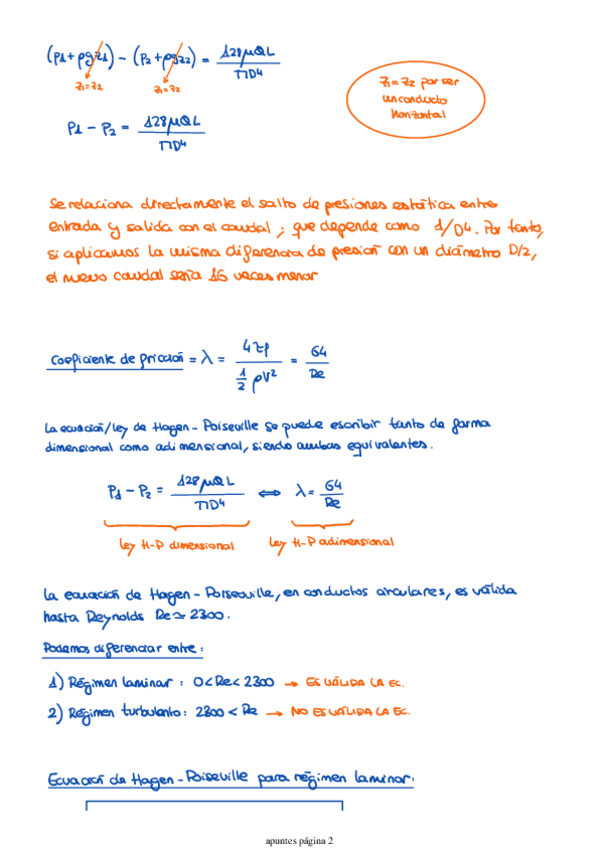 (P1+ρgz1) - (P2+ρgz2) = 128μQL / πD4
z1=z2 z1=z2
z1=z2 por ser
un conducto
horizontal
P1 - P2 = 128μQL / πD4
Se relaciona directamente el salto de presiones estática entre
entrada y salida con el caudal; que depende como 1/D4. Por tanto,
si aplicamos la misma diferencia de presión con un diámetro D/2,
el nuevo caudal sería 16 veces menor
Coeficiente de fricción = λ = 4τp / ½ρV² = 64 / Re
La ecuación/ley de Hagen-Poiseville se puede escribir tanto de forma
dimensional como adimensional, siendo ambas equivalentes.
P1 - P2 = 128μQL / πD4 ⇔ λ = 64 / Re
ley H-P dimensional ley H-P adimensional
La ecuación de Hagen-Poiseville, en conductos circulares, es válida
hasta Reynolds Re ≃ 2300.
Podemos diferenciar entre:
1) Régimen laminar: 0<Re<2300 → ES VÁLIDA LA EC.
2) Régimen turbulento: 2300<Re → NO ES VÁLIDA LA EC.
Ecuación de Hagen-Poiseville para régimen laminar:
apuntes página 2